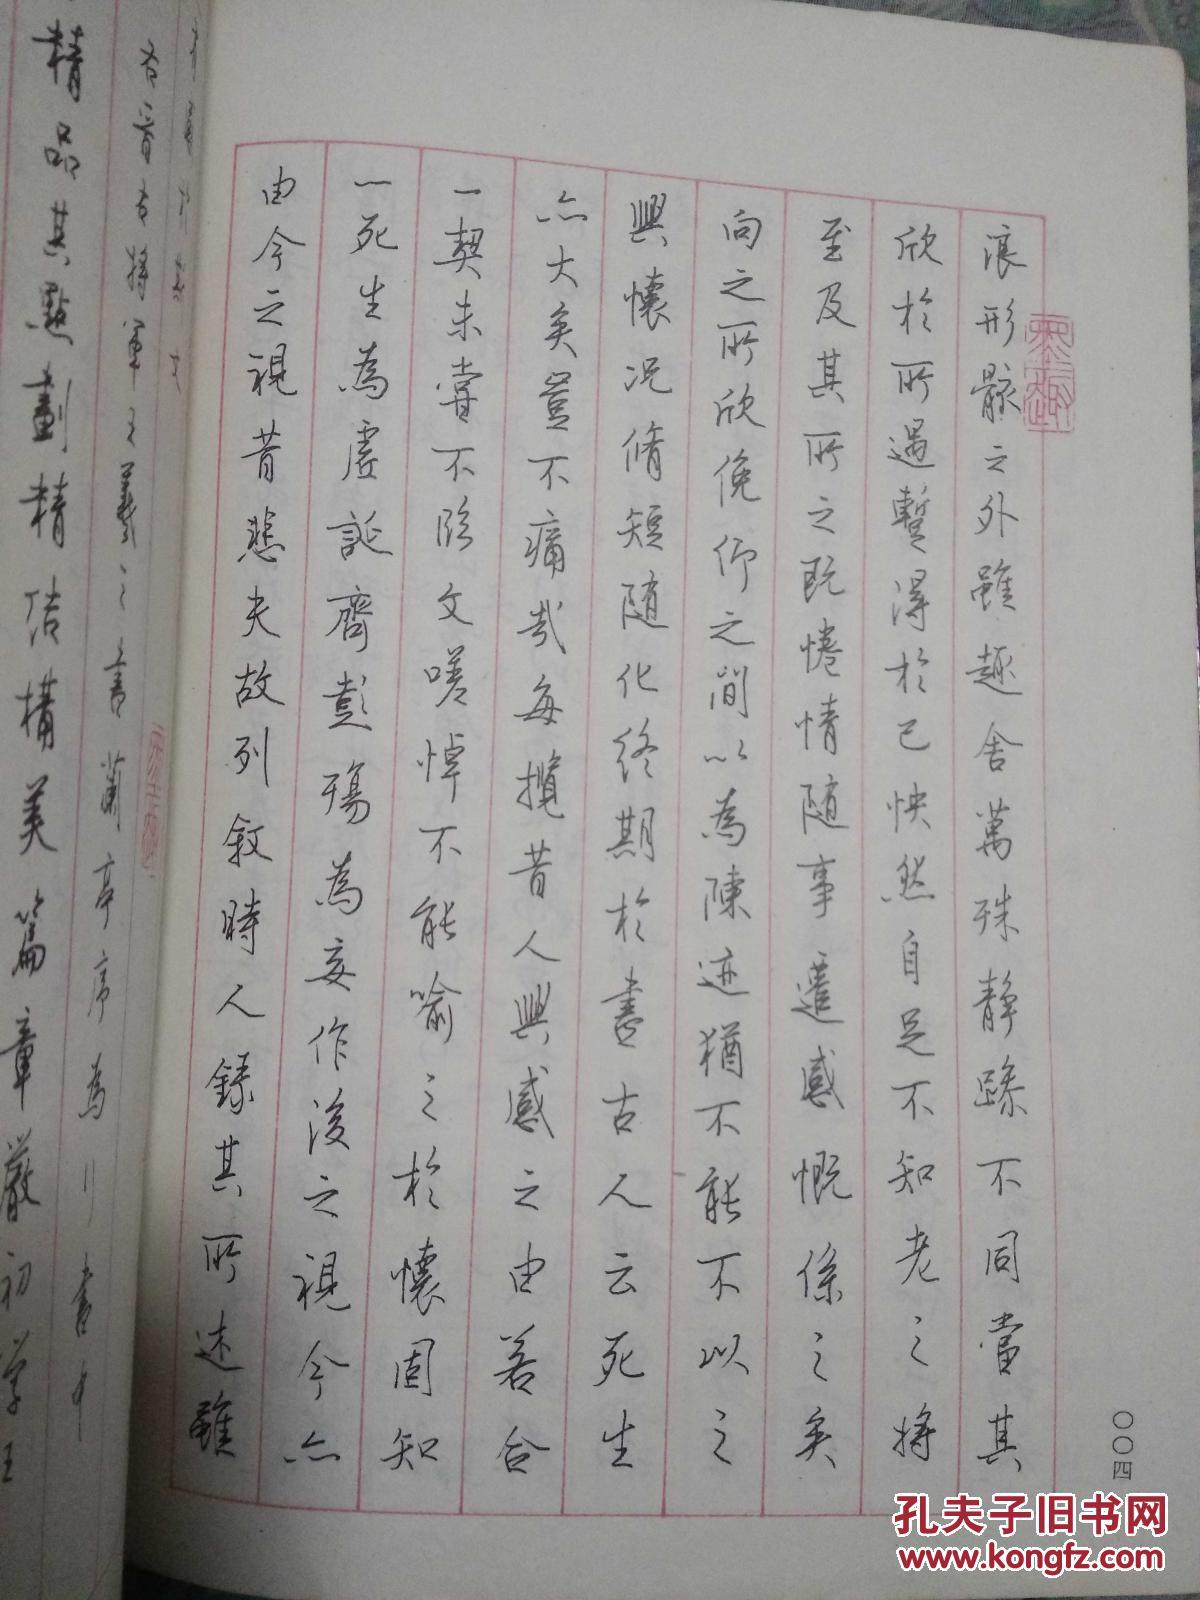 浪形骸之外雖趣舍萬殊靜躁不同當其
欣於所遇蹔得於己怏然自足不知老之將
至及其所之既惓情随事遷感慨係之矣
向之所欣俛仰之閒以為陳迹猶不能不以之
興懷況脩短随化終期於盡古人云死生
亦大矣豈不痛哉每攬昔人興感之由若合
一契未嘗不臨文嗟悼不能喻之於懷固知
一死生為虛誕齊彭殤為妄作後之視今亦
由今之視昔悲夫故列敘時人錄其所述雖
右晉右將軍王羲之書蘭亭序為行書中
精品其點劃精結構美篇章嚴初學王
〇〇〇四
孔夫子旧书网
www.kongfz.com